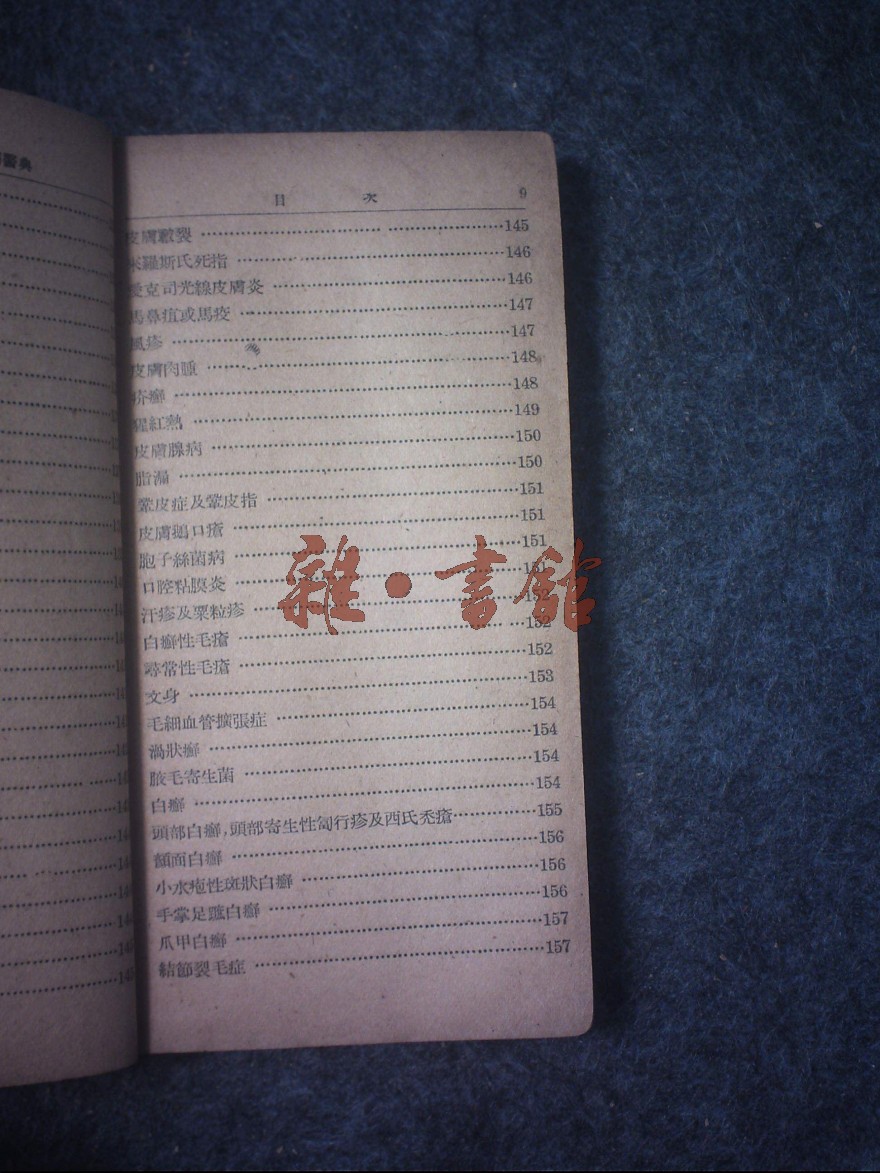 醫典
目 次 9
皮膚皸裂 145
米羅斯氏死指 146
愛克司光線皮膚炎 146
馬鼻疽或馬疫 147
風疹 147
皮膚肉腫 148
疥癬 148
猩紅熱 149
皮膚腺病 150
脂漏 150
鞏皮症及鞏皮指 151
皮膚鵝口瘡 151
胞子絲菌病 151
口腔粘膜炎 151
汗疹及粟粒疹 152
白癬性毛瘡 152
尋常性毛瘡 152
文身 153
毛細血管擴張症 154
渦狀癬 154
腋毛寄生菌 154
白癬 154
頭部白癬,頭部寄生性匐行疹及西氏禿瘡 155
顏面白癬 156
小水疱性斑狀白癬 156
手掌足蹠白癬 156
爪甲白癬 157
結節裂毛症 157
雜·書館